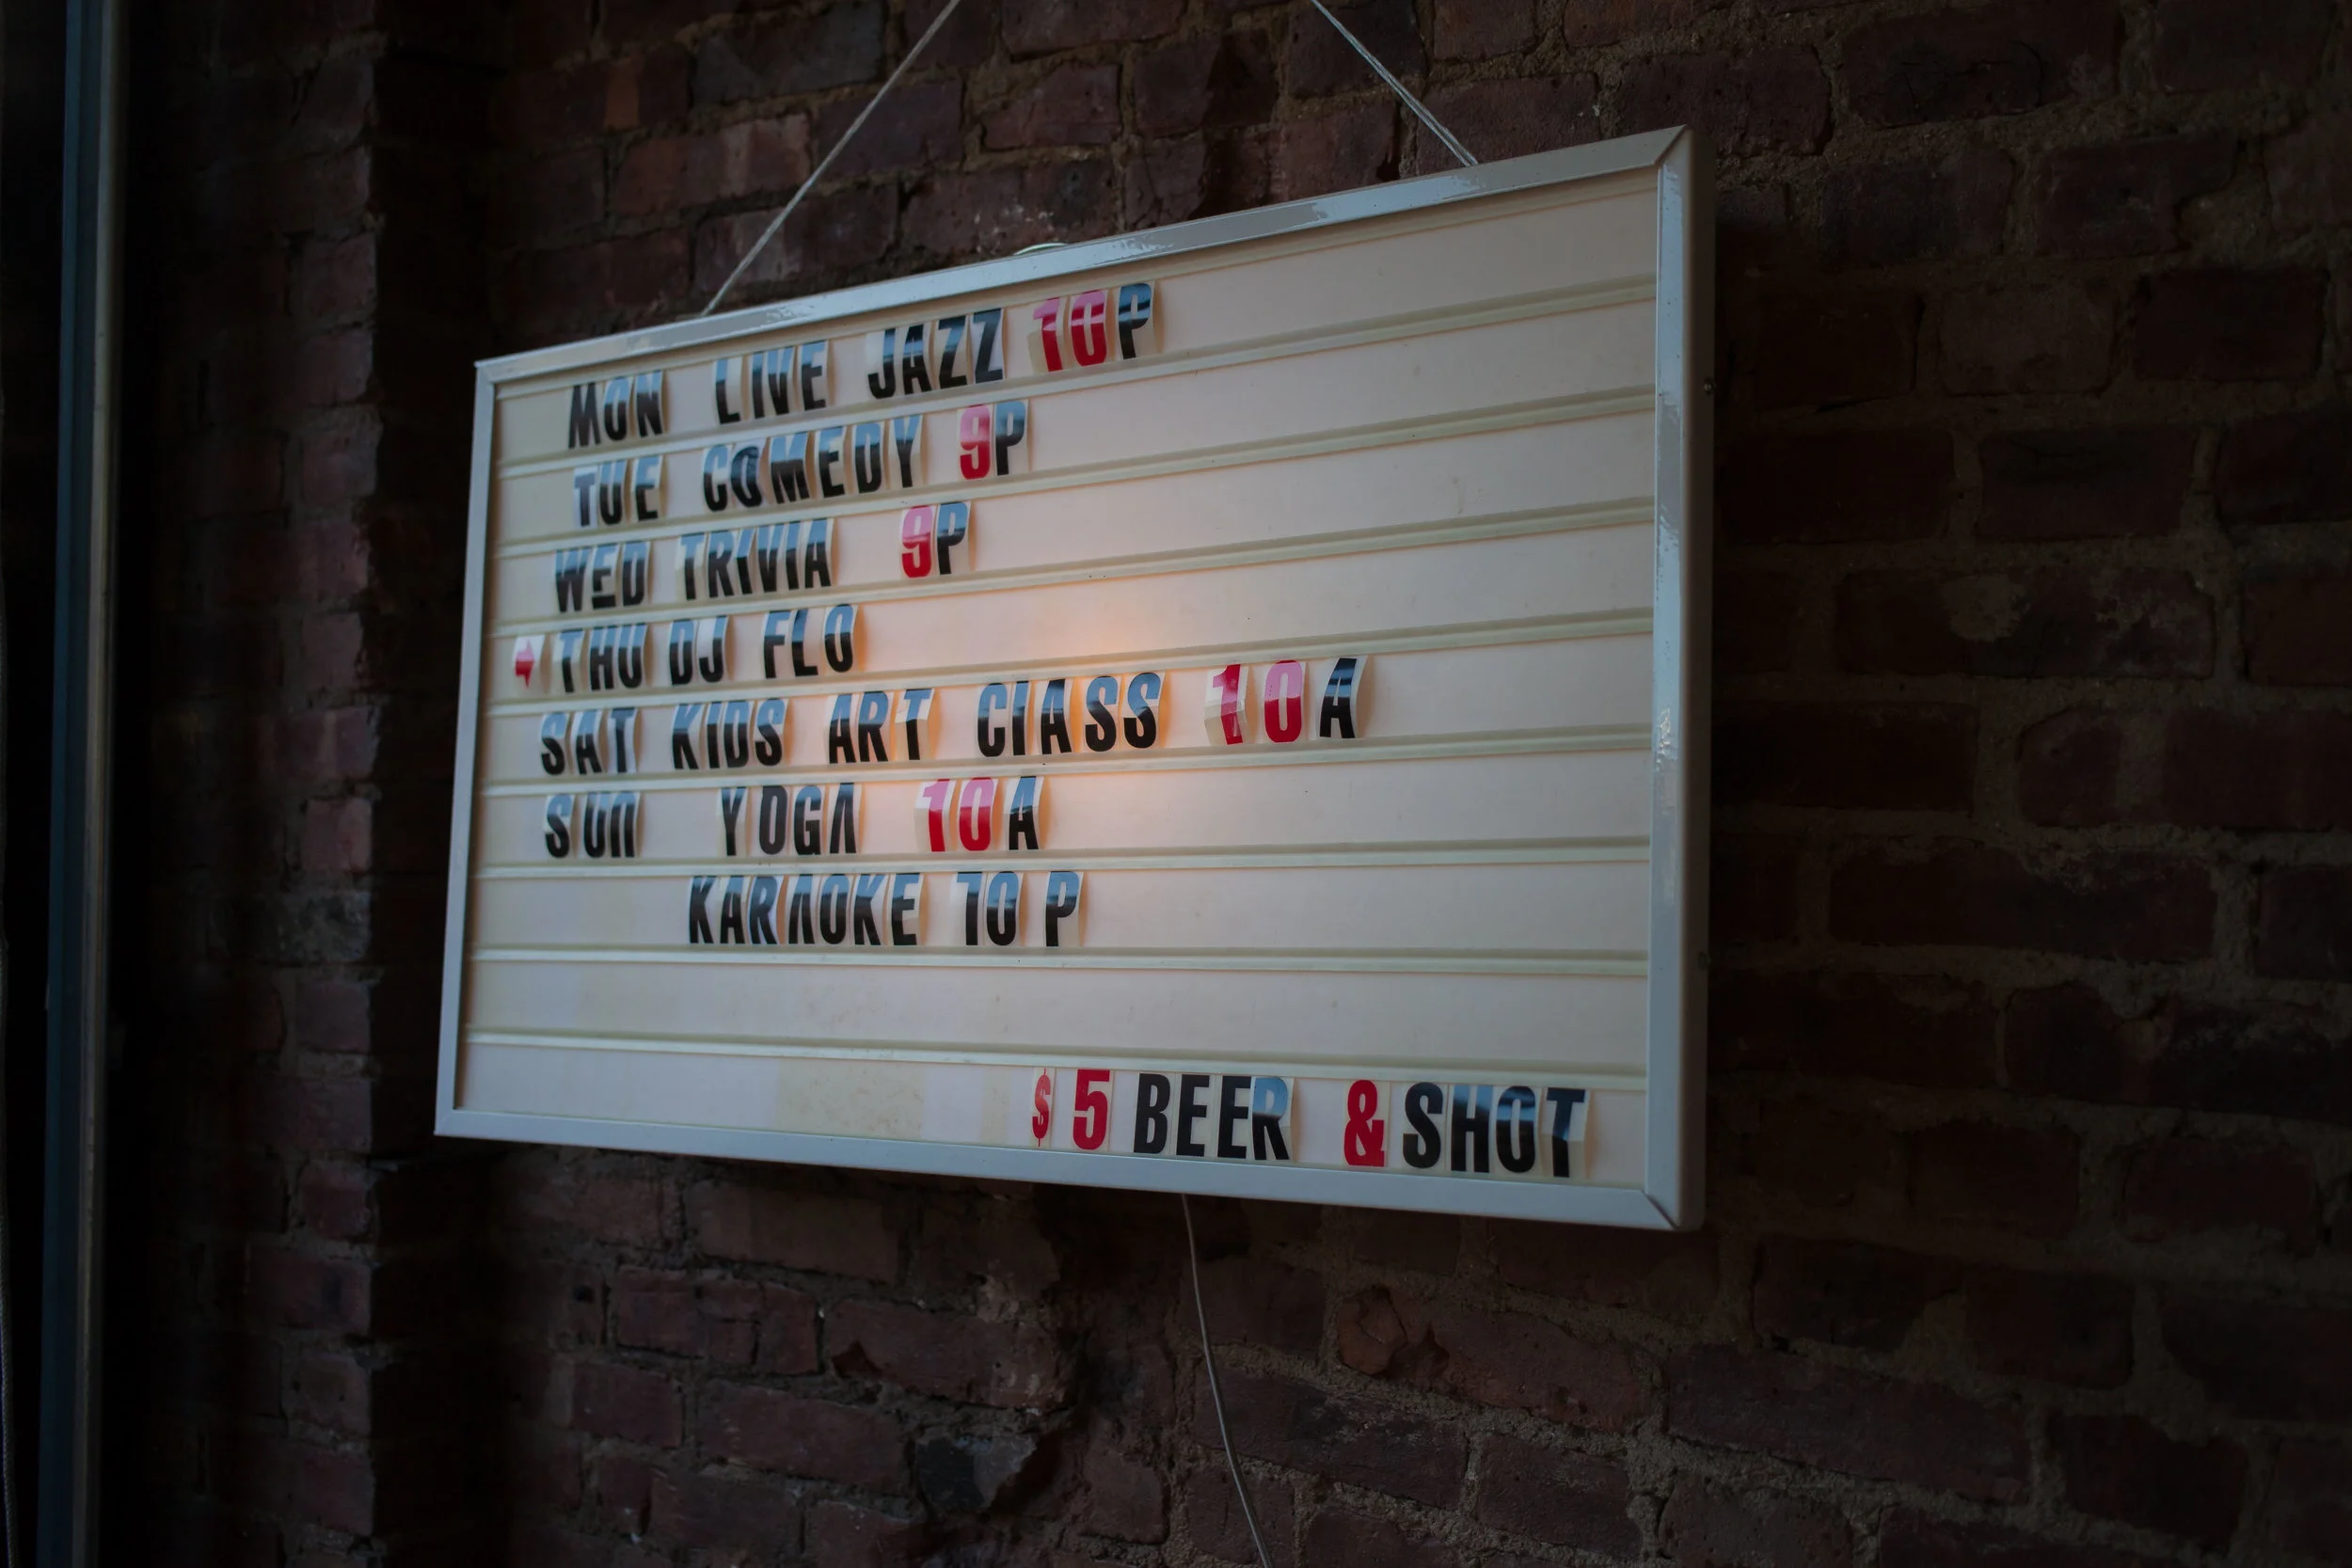 MON LIVE JAZZ 10P
TUE COMEDY 9P
WED TRIVIA 9P
THU DJ FLO
SAT KIDS ART ClASS 10A
SUn YOGA 10A
KARAOKE 10 P
$5 BEER & SHOT